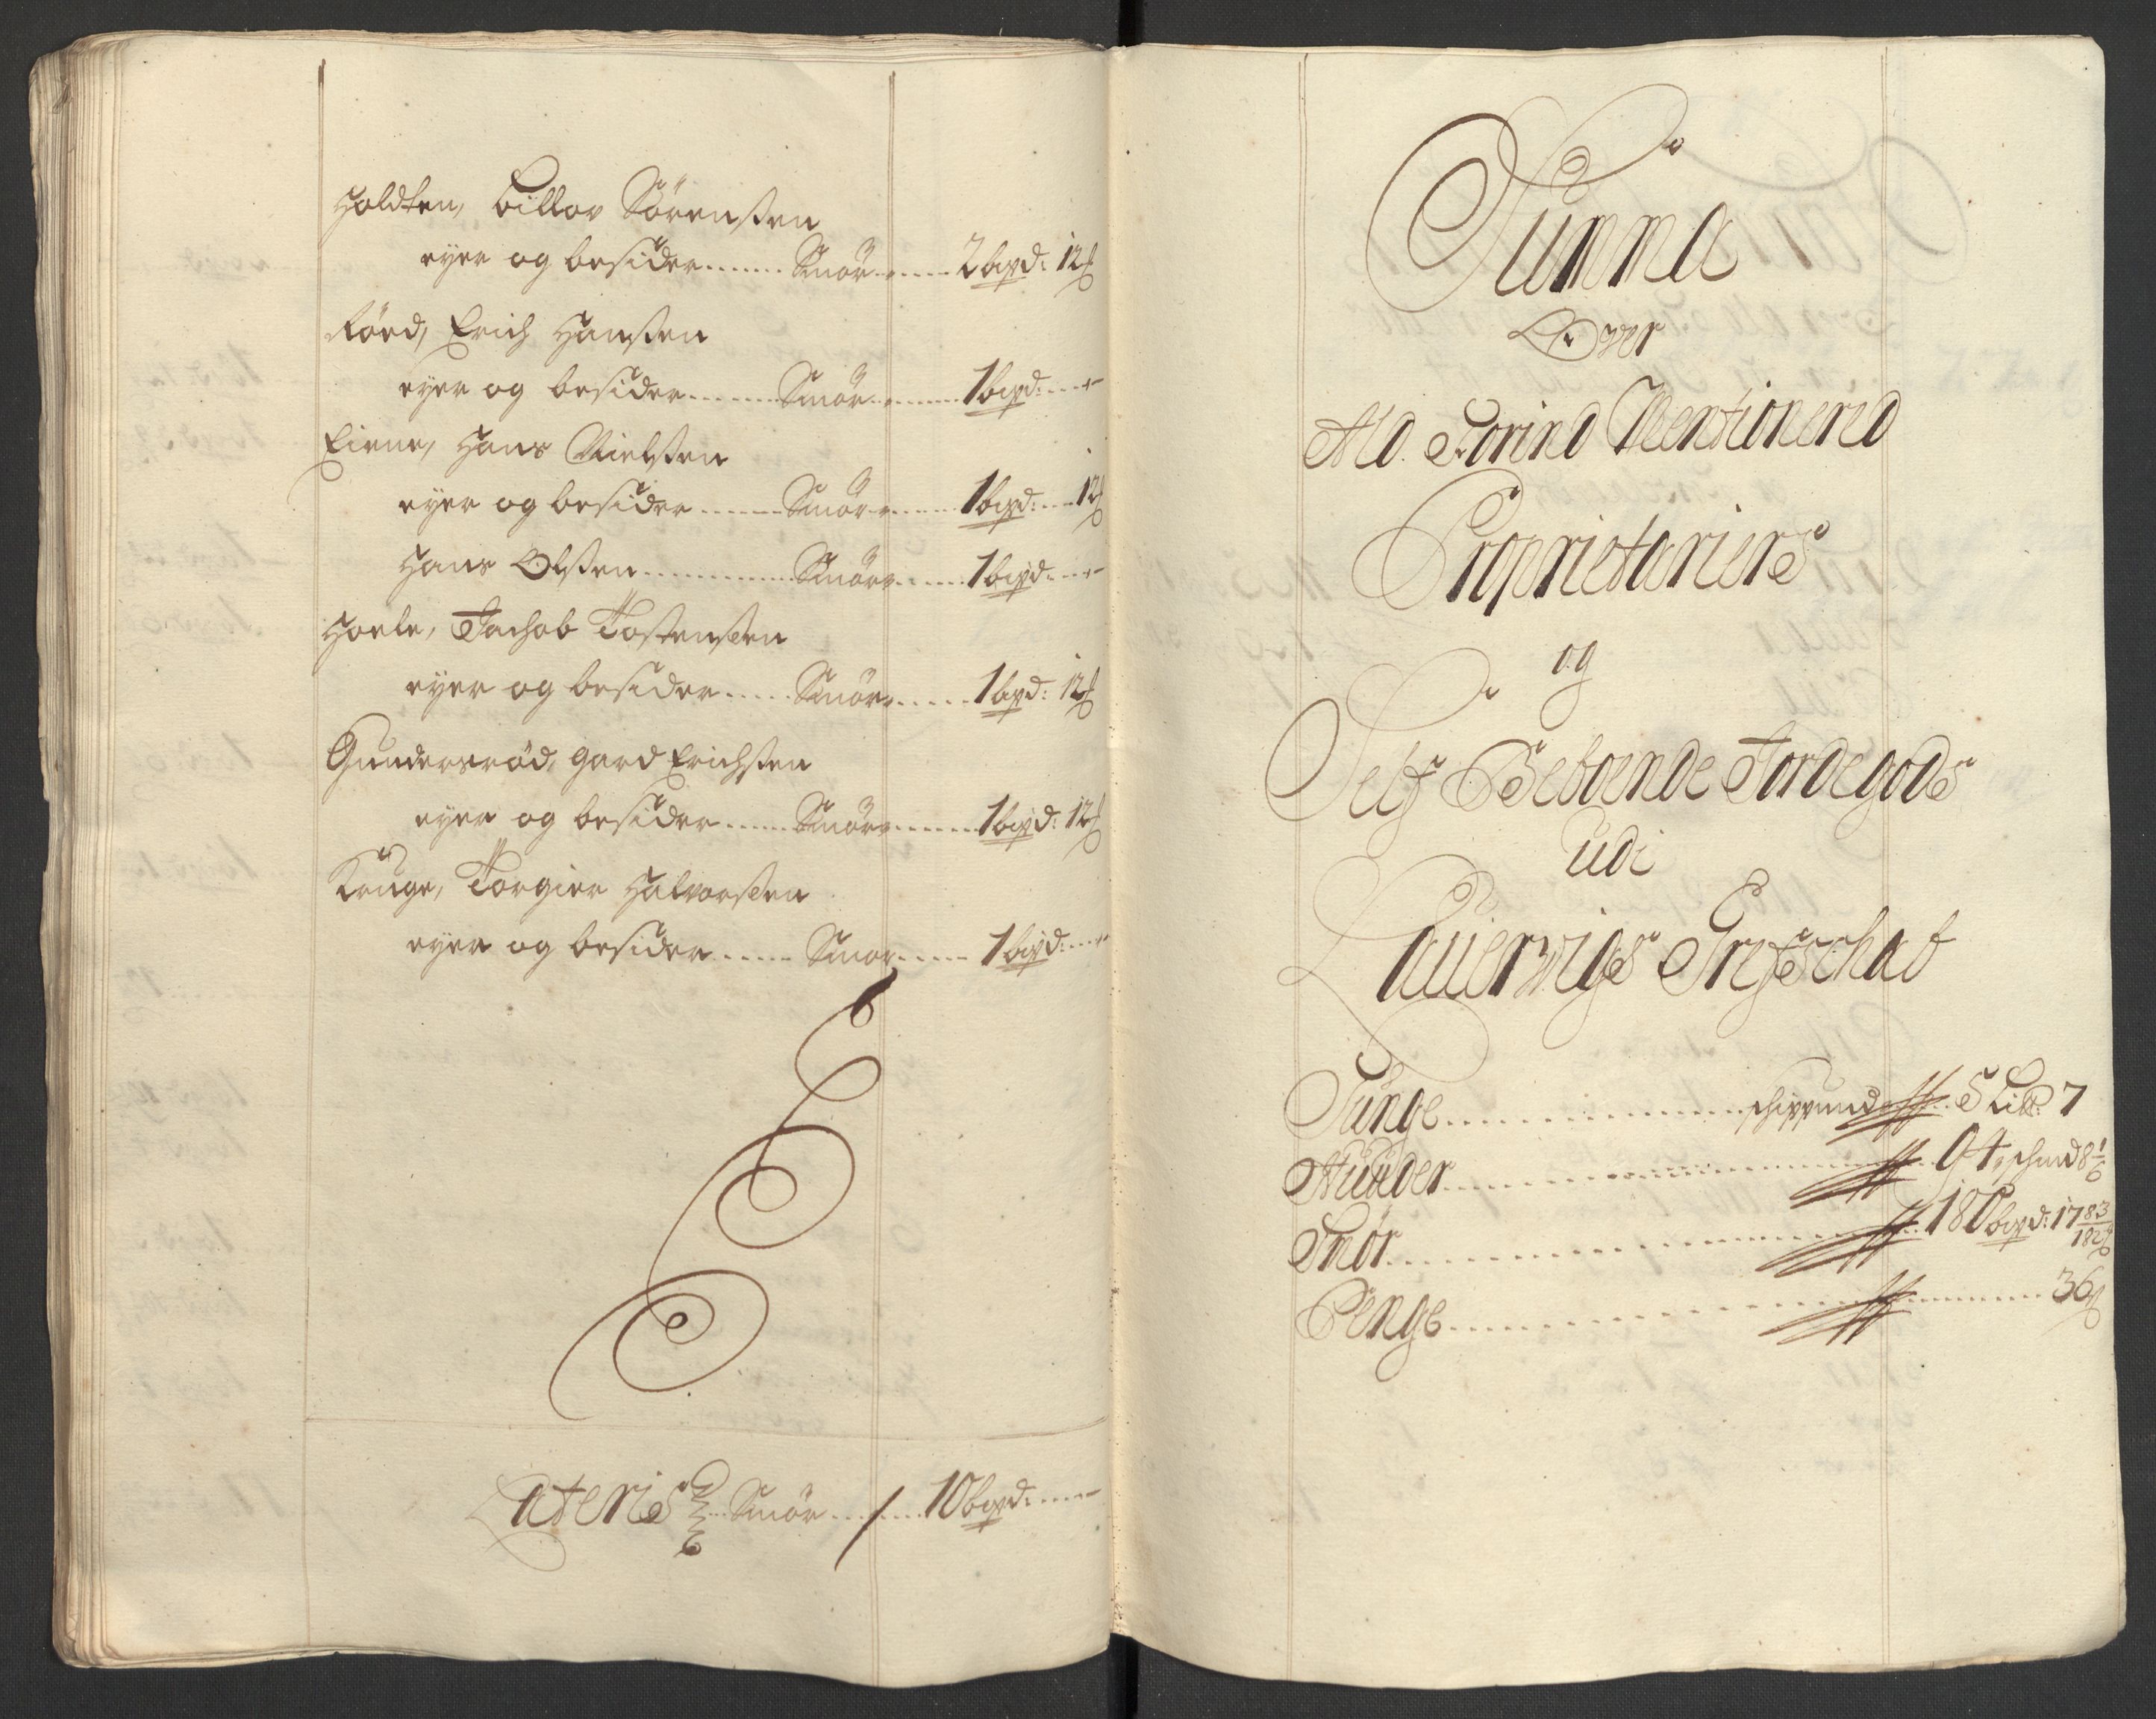 Holdten, Pillov Sörensen
eyer og besider ....... Smör ....... 2 bpd: 12 ₰
Röed, Erich Hansen
eyer og besider ....... Smör ....... 1 bpd: ---
Eierne, Hans Nielsen
eyer og besider ....... Smör ....... 1 bpd: 12 ₰
Hans Olsen ............ Smör ....... 1 bpd: ---
Hoele, Jachob Tostensen
eyer og besider ..... Smör ...... 1 bpd: 12 ₰
Gundersröd, Gard Erichsen
eyer og besider ..... Smör ...... 1 bpd: 12 ₰
Kruge, Torgier Halvorsen
eyer og besider ..... Smör ..... 1 bpd: ---
Lateris Smör ....... 10 bpd: ---
Summa
Over
Ald. Forind Mentionered
Proprietariers
og
Self Beboende Jordegods
udi
Laurwigs Grefschab
Tunge ............ schippund 5 Lis: 7
Huuder ............ 94, schind 8 1/6
Smör ............ 180 bpd: 17 83/182 ₰
Penge ............ 36 ₰